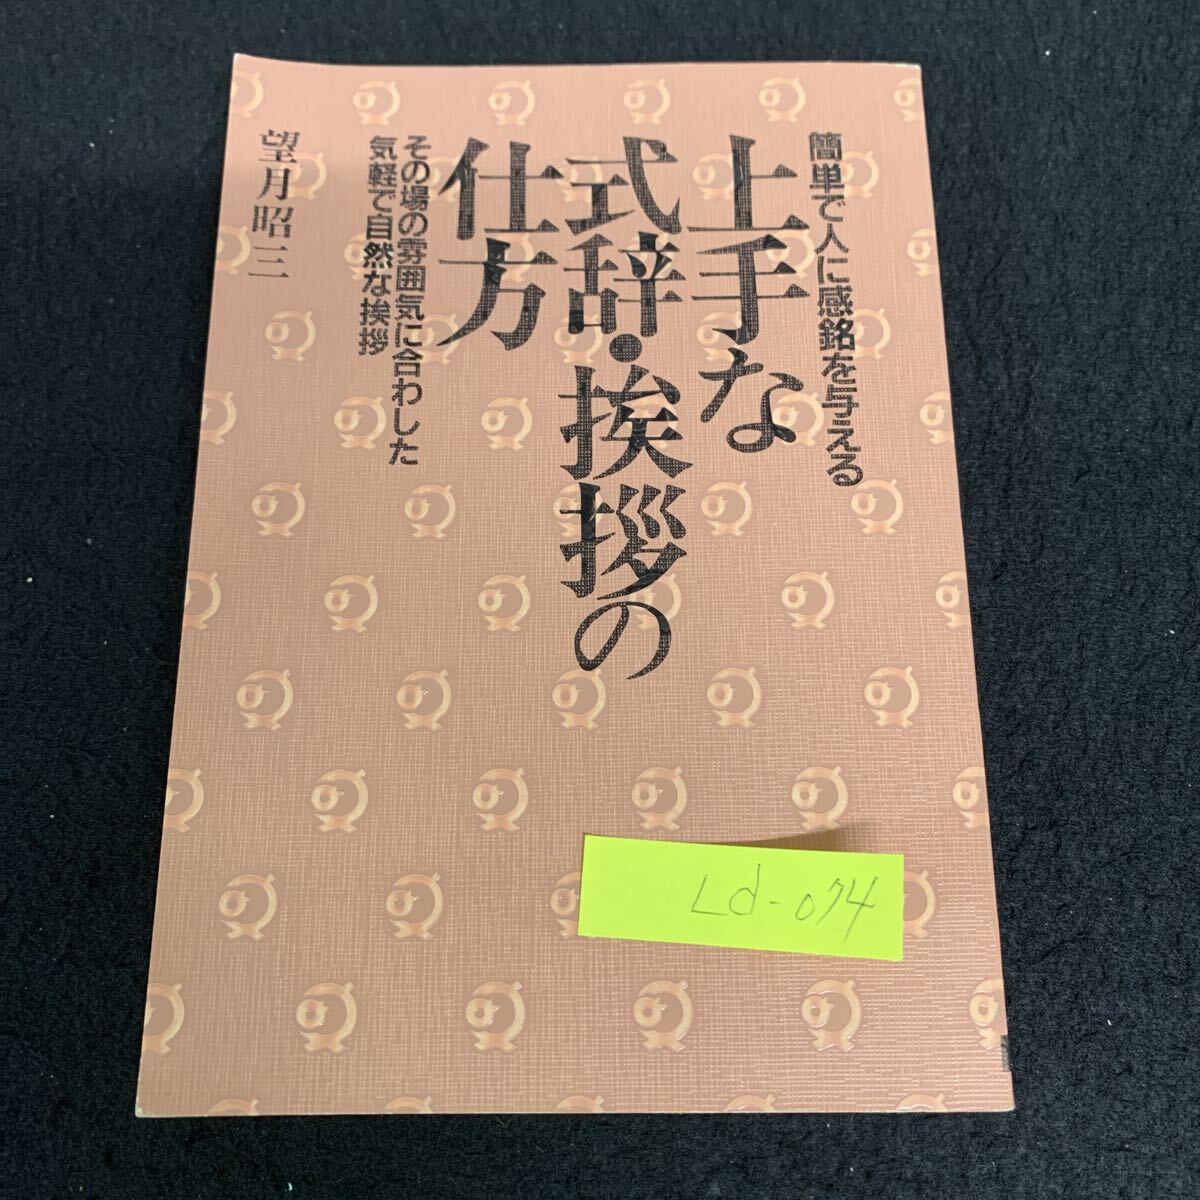 簡単で人に感銘を与える
上手な
式辞・挨拶の
仕方
その場の雰囲気に合わした
気軽で自然な挨拶
望月昭三
Ld-074